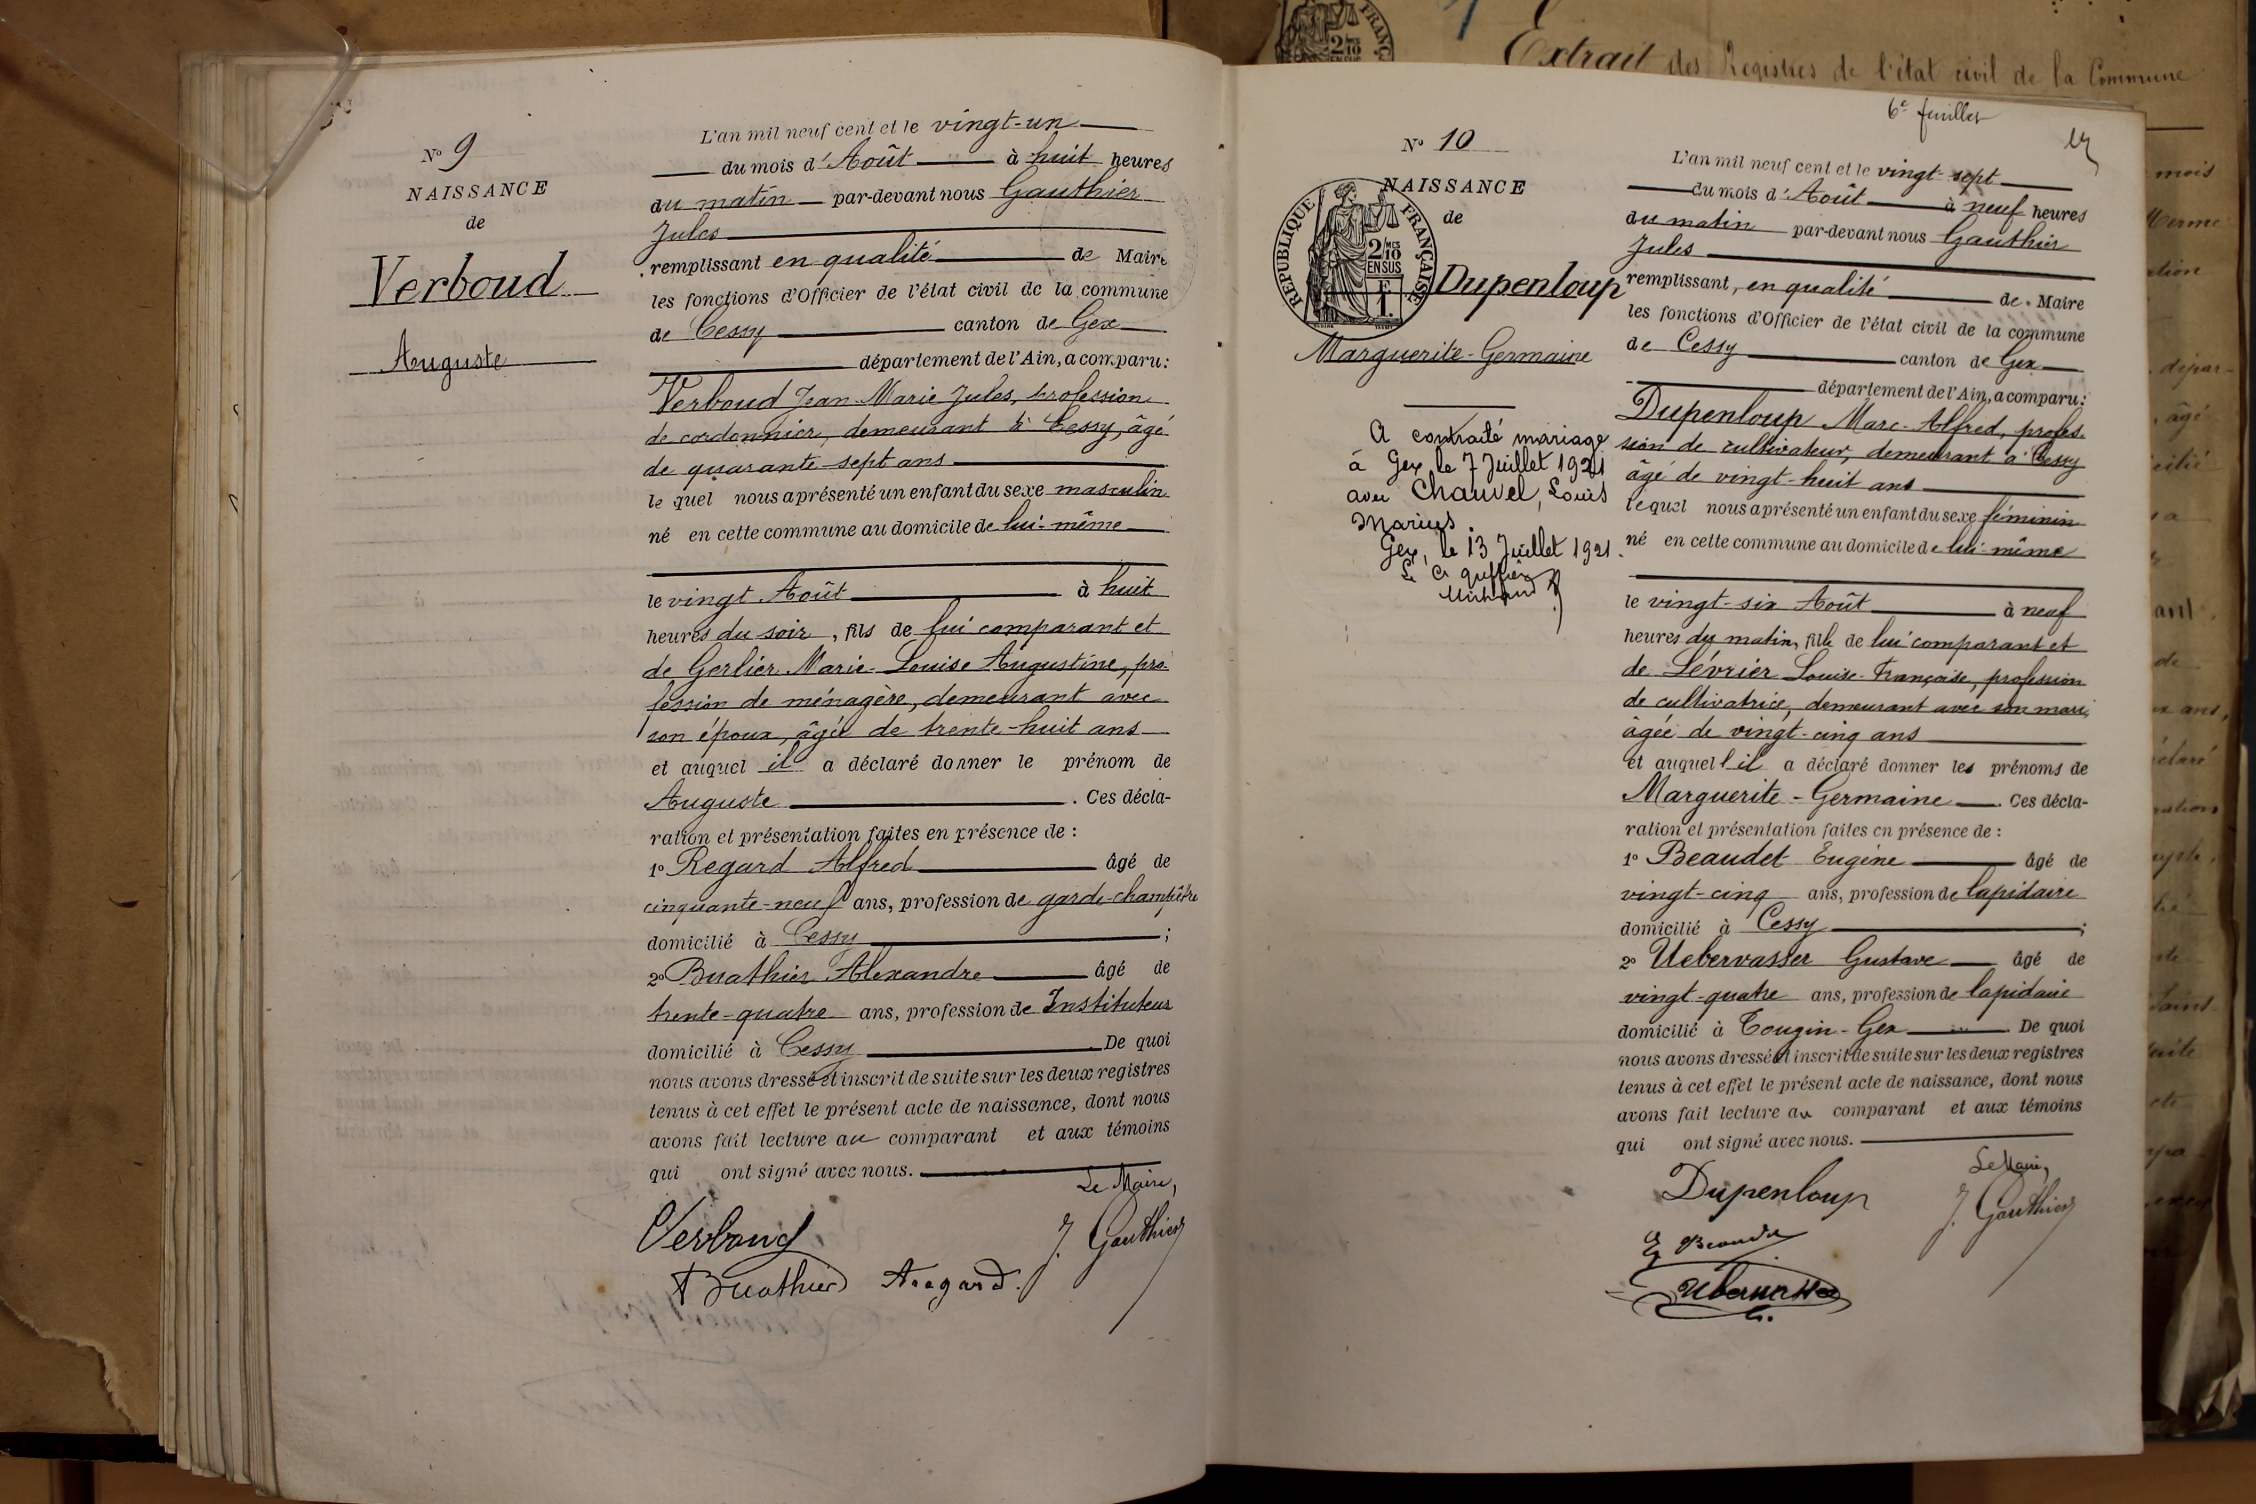 Nº 9
NAISSANCE
de
Verboud
Auguste
L'an mil neuf cent et le vingt-un
du mois d'Août à huit heures
du matin par-devant nous Gauthier
Jules
remplissant en qualité de Maire
les fonctions d'Officier de l'état civil de la commune
de Cessy canton de Gex
département de l'Ain, a comparu:
Verboud Jean-Marie Jules, profession
de cordonnier, demeurant à Cessy, âgé
de quarante-sept ans
le quel nous a présenté un enfant du sexe masculin
né en cette commune au domicile de lui-même
le vingt Août à huit
heures du soir, fils de lui comparant et
de Gerlier Marie-Louise Augustine, pro-
fession de ménagère, demeurant avec
son époux, âgée de trente-huit ans
et auquel il a déclaré donner le prénom de
Auguste. Ces décla-
ration et présentation faites en présence de :
1º Regard Alfred âgé de
cinquante-neuf ans, profession de garde-champêtre
domicilié à Cessy ;
2º Buathier Alexandre âgé de
trente-quatre ans, profession de Instituteur
domicilié à Cessy De quoi
nous avons dressé et inscrit de suite sur les deux registres
tenus à cet effet le présent acte de naissance, dont nous
avons fait lecture au comparant et aux témoins
qui ont signé avec nous.
Le Maire,
Verboud J. Gauthier
Buathier A regard.
Extrait des Registres de l'état civil de la Commune
6e feuillet
Nº 10
NAISSANCE
de
RÉPUBLIQUE FRANÇAISE
2/10 MES
EN SUS
F
1.
Dupenloup
Marguerite-Germaine
A contracté mariage
à Gex le 7 Juillet 1921
avec Chauvel, Louis
Marius.
Gex, le 13 Juillet 1921.
Le Greffier
L'an mil neuf cent et le vingt-sept
du mois d'Août à neuf heures
du matin par-devant nous Gauthier
Jules
remplissant, en qualité de Maire
les fonctions d'Officier de l'état civil de la commune
de Cessy canton de Gex
département de l'Ain, a comparu:
Dupenloup Marc-Alfred, profes-
sion de cultivateur, demeurant à Cessy
âgé de vingt-huit ans
lequel nous a présenté un enfant du sexe féminin
né en cette commune au domicile de lui-même
le vingt-six Août à neuf
heures du matin, fille de lui comparant et
de Lévrier Louise-Françoise, profession
de cultivatrice, demeurant avec son mari,
âgée de vingt-cinq ans
et auquel il a déclaré donner les prénoms de
Marguerite-Germaine. Ces décla-
ration et présentation faites en présence de :
1º Beaudet Eugène âgé de
vingt-cinq ans, profession de lapidaire
domicilié à Cessy ;
2º Uebervasser Gustave âgé de
vingt-quatre ans, profession de lapidaire
domicilié à Tougin-Gex. De quoi
nous avons dressé et inscrit de suite sur les deux registres
tenus à cet effet le présent acte de naissance, dont nous
avons fait lecture au comparant et aux témoins
qui ont signé avec nous.
Le Maire,
Dupenloup J. Gauthier